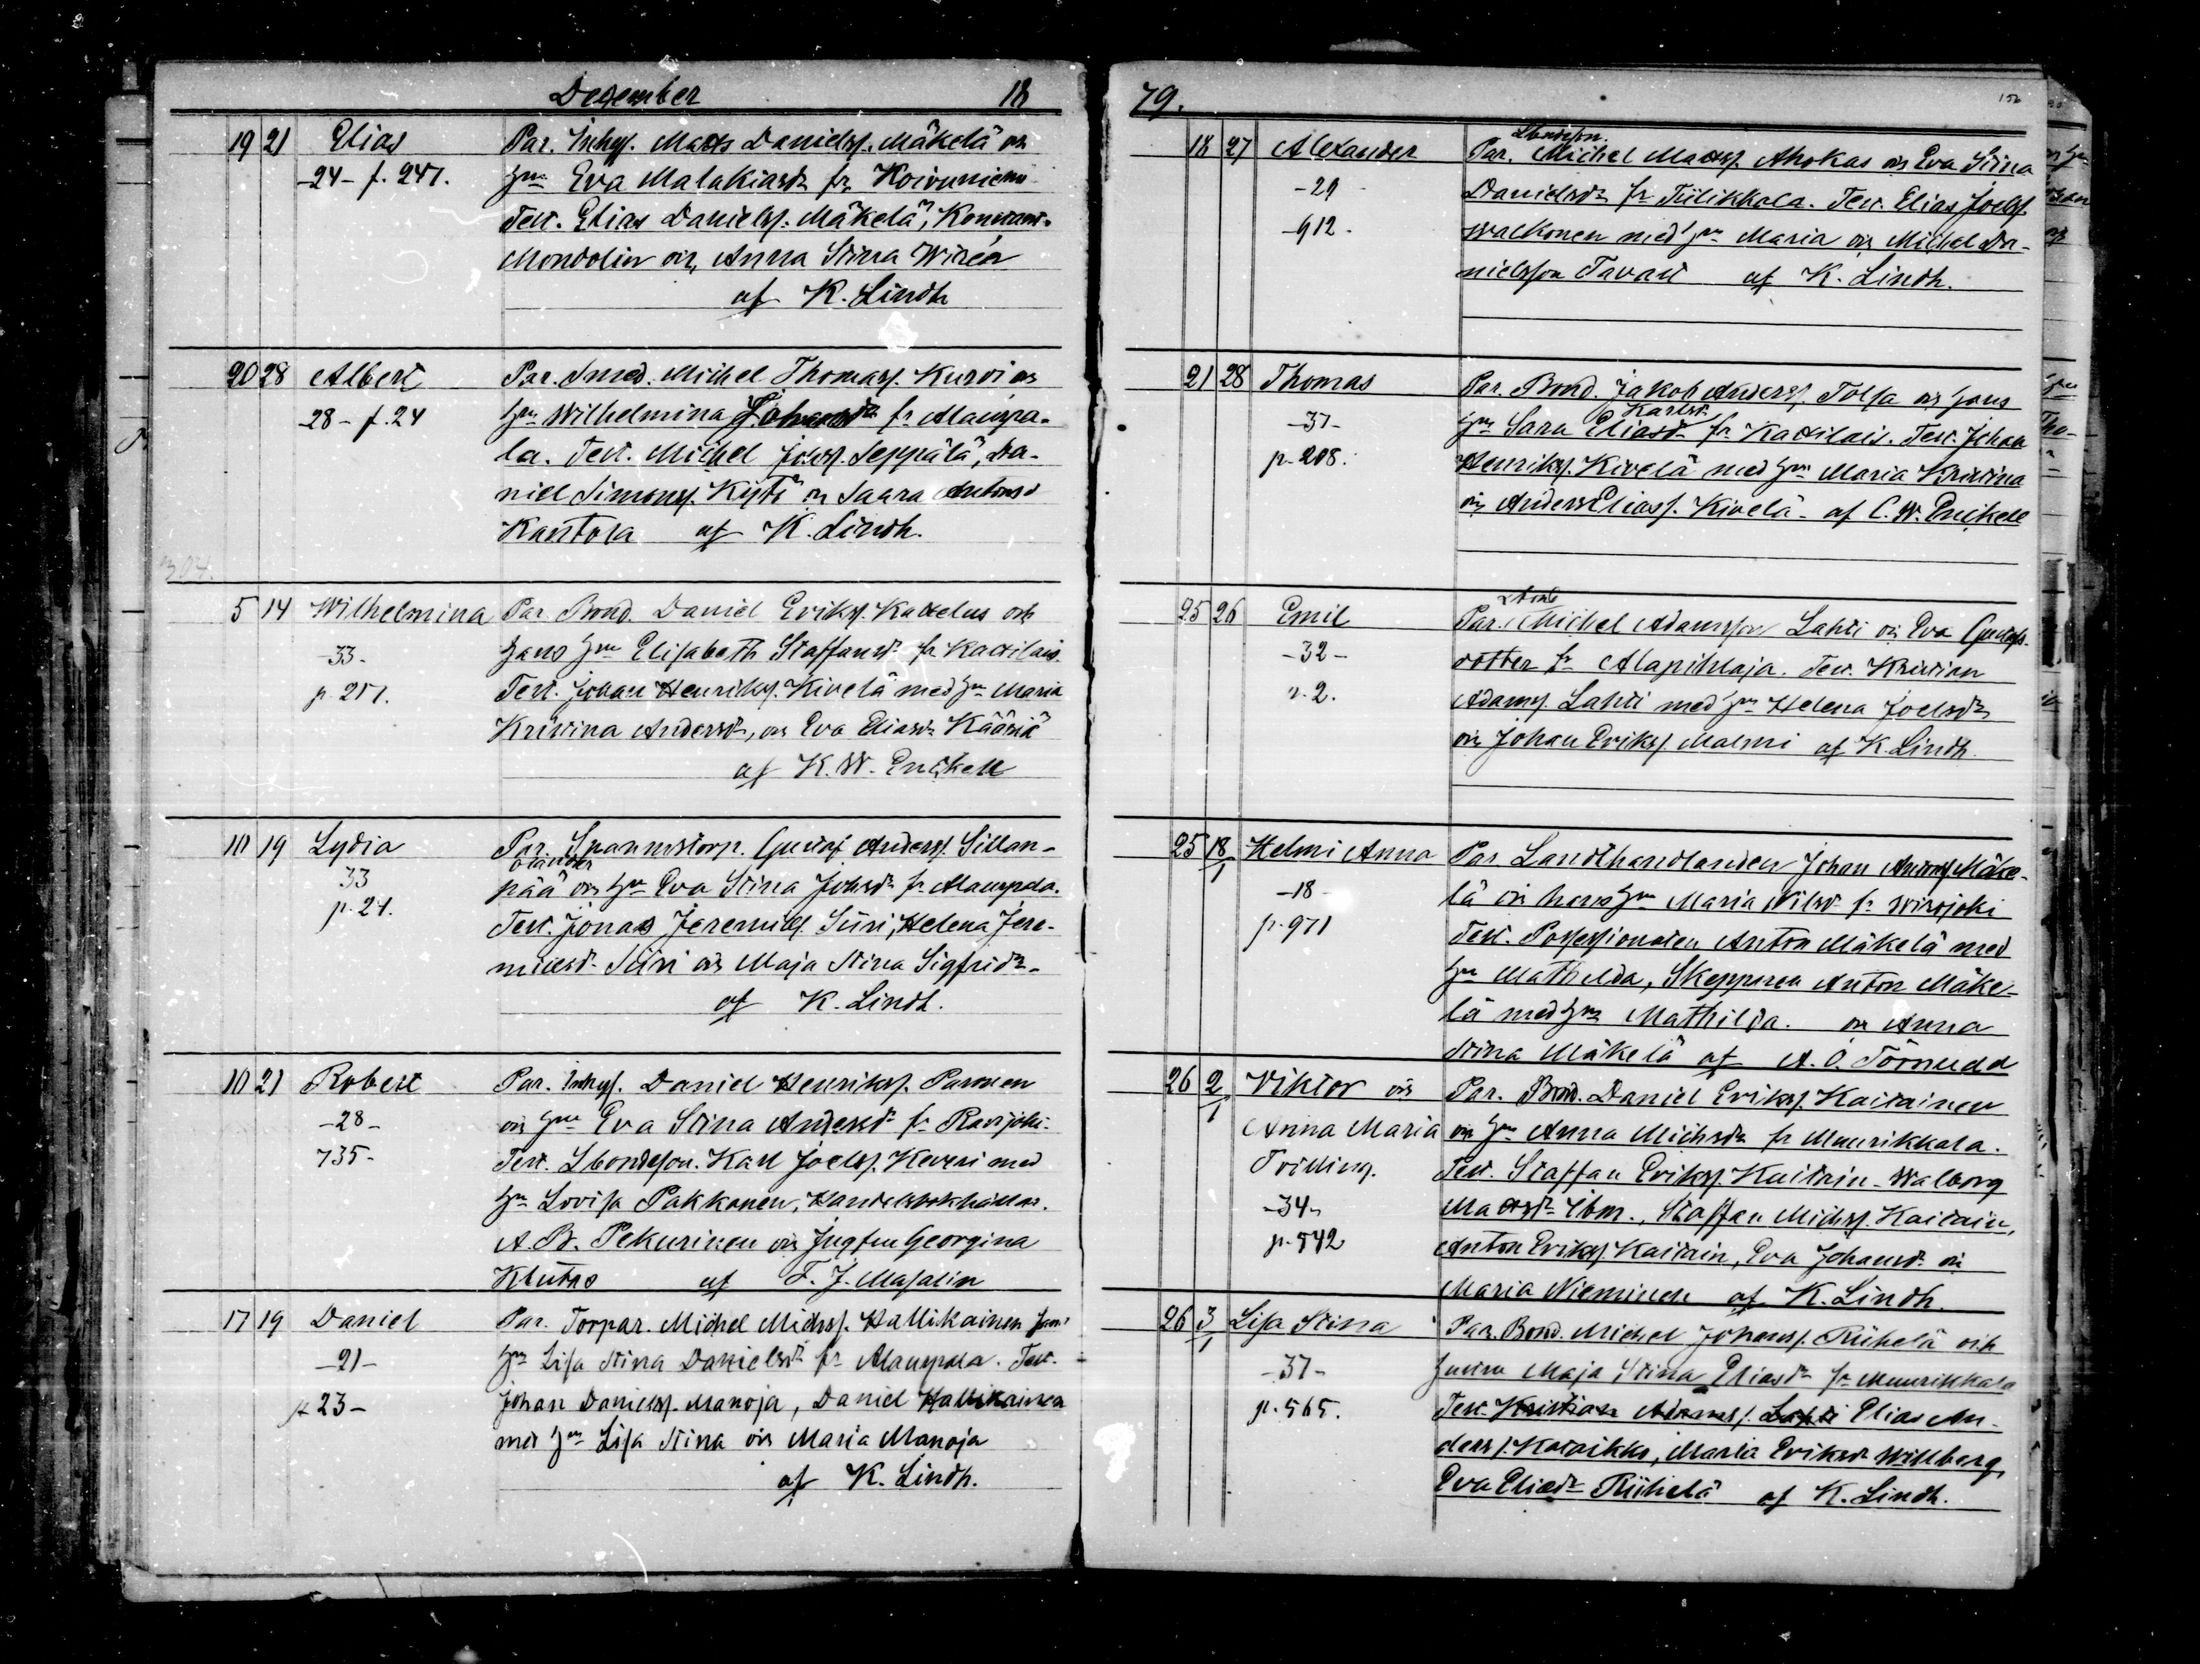 December 18
19 21 Elias Par. Inhys. Matts Danielss. Mäkelä och
-24- f. 247. Hu Eva Malakiasdr fr Koivuniemi
Test. Elias Danielss. Mäkelä, Konstant.
Mondolin och Anna Stina Wirén
af K. Lindh
20 28 Albert Par. Smed. Michel Thomass. Kurvi och
28 - f. 24 Hu Wilhelmina fr Alaurpa-
la. Test. Michel Johss. Seppälä, Da-
niel Simonss. Kyttö och Saara Antonsd
Kantola af K. Lindh.
304.
5 14 Wilhelmina Par. Bond. Daniel Erikss. Kattelus och
-33- hans Hu Elisabeth Staffansdr fr Kattilais.
p. 217. Test. Johan Henrikss. Kivelä med Hu Maria
Kristina Andersdr, och Eva Eliasdr Kääriä
af K. W. Enckell
10 19 Lydia Par. Spannmstorp. Gustaf Anderss. Sillan-
33 pää och Hu Eva Stina Johsdr fr Alaurpala.
p. 24. Test. Jonas Jeremiass. Siiri, Helena Jere-
miasdr Siiri och Maja Stina Sigfridsdr
af K. Lindh.
10 21 Robert Par. Inhys. Daniel Henrikss. Paronen
-28- och Hu Eva Stina Andersdr fr Ravijoki
735- Test. Lbondeson. Karl Joelss. Keveri med
Hu Lovisa Pakkanen, Handelsbokhållar.
A. B. Pekurinen och Jungfru Georgina
Klutas af F. J. Masalin
17 19 Daniel Par. Torpar. Michel Michss. Hallikainen
-21- Hu Lisa Stina Danielsdr fr Alaurpala. Test.
p 23- Johan Danielss. Manoja, Daniel Hallikainen
med Hu Lisa Stina och Maria Manoja
af K. Lindh.
79. 156
Lbondeson.
18 27 Alexander Par. Michel Mattss. Ahokas och Eva Stina
-29- Danielsdr fr Tiilikkala. Test. Elias Joelss.
-912- Walkonen med Hu Maria och Michel Da-
nielsson Tavast af K. Lindh.
21 28 Thomas Par. Bond. Jakob Anderss. Tolsa och hans
Karlsdr
-37- Hu Sara Eliasdr fr Kattilais. Test. Johan
p. 208. Henrikss. Kivelä med Hu Maria Kristina
och Anders Eliass. Kivelä. af C. W. Enckell
25 26 Emil Par. Michel Adamsson Lahti och Eva Gustafs-
-32- dotter fr Alapihlaja. Test. Kristian
p. 2. Adams. Lahti med Hu Helena Joelsdr
och Johan Erikss. Malmi af K. Lindh.
25 18/1 Helmi Anna Par Landthandlanden Johan Antons Mäke-
-18- lä och hans Hu Maria Nilsdr fr Wirojoki
p. 971 Test. Possessionaten Anton Mäkelä med
Hu Mathilda, Skepparen Anton Mäke-
lä med Hu Mathilda. och Anna
Stina Mäkelä af A. O. Törnudd
26 2/1 Viktor och Par. Bond. Daniel Erikss. Kaitainen
Anna Maria och Hu Anna Michsdr fr Muurikkala.
Tvilling. Test. Staffan Erikss. Kaitain, Walborg
-34- Mattsdr Ibm., Staffan Michss. Kaitain,
p. 542 Anton Erikss. Kaitain, Eva Johansdr och
Maria Nieminen af K. Lindh.
26 3/1 Lisa Stina Par. Bond. Michel Johanss. Riihelä och
-37- hustru Maja Stina Eliasdr fr Muurikkala
p. 565. Test. Kristian Adamss. Lahti Elias An-
derss. Kotaikko, Maria Eriksdr Willberg,
Eva Eliasdr Riihelä af K. Lindh.